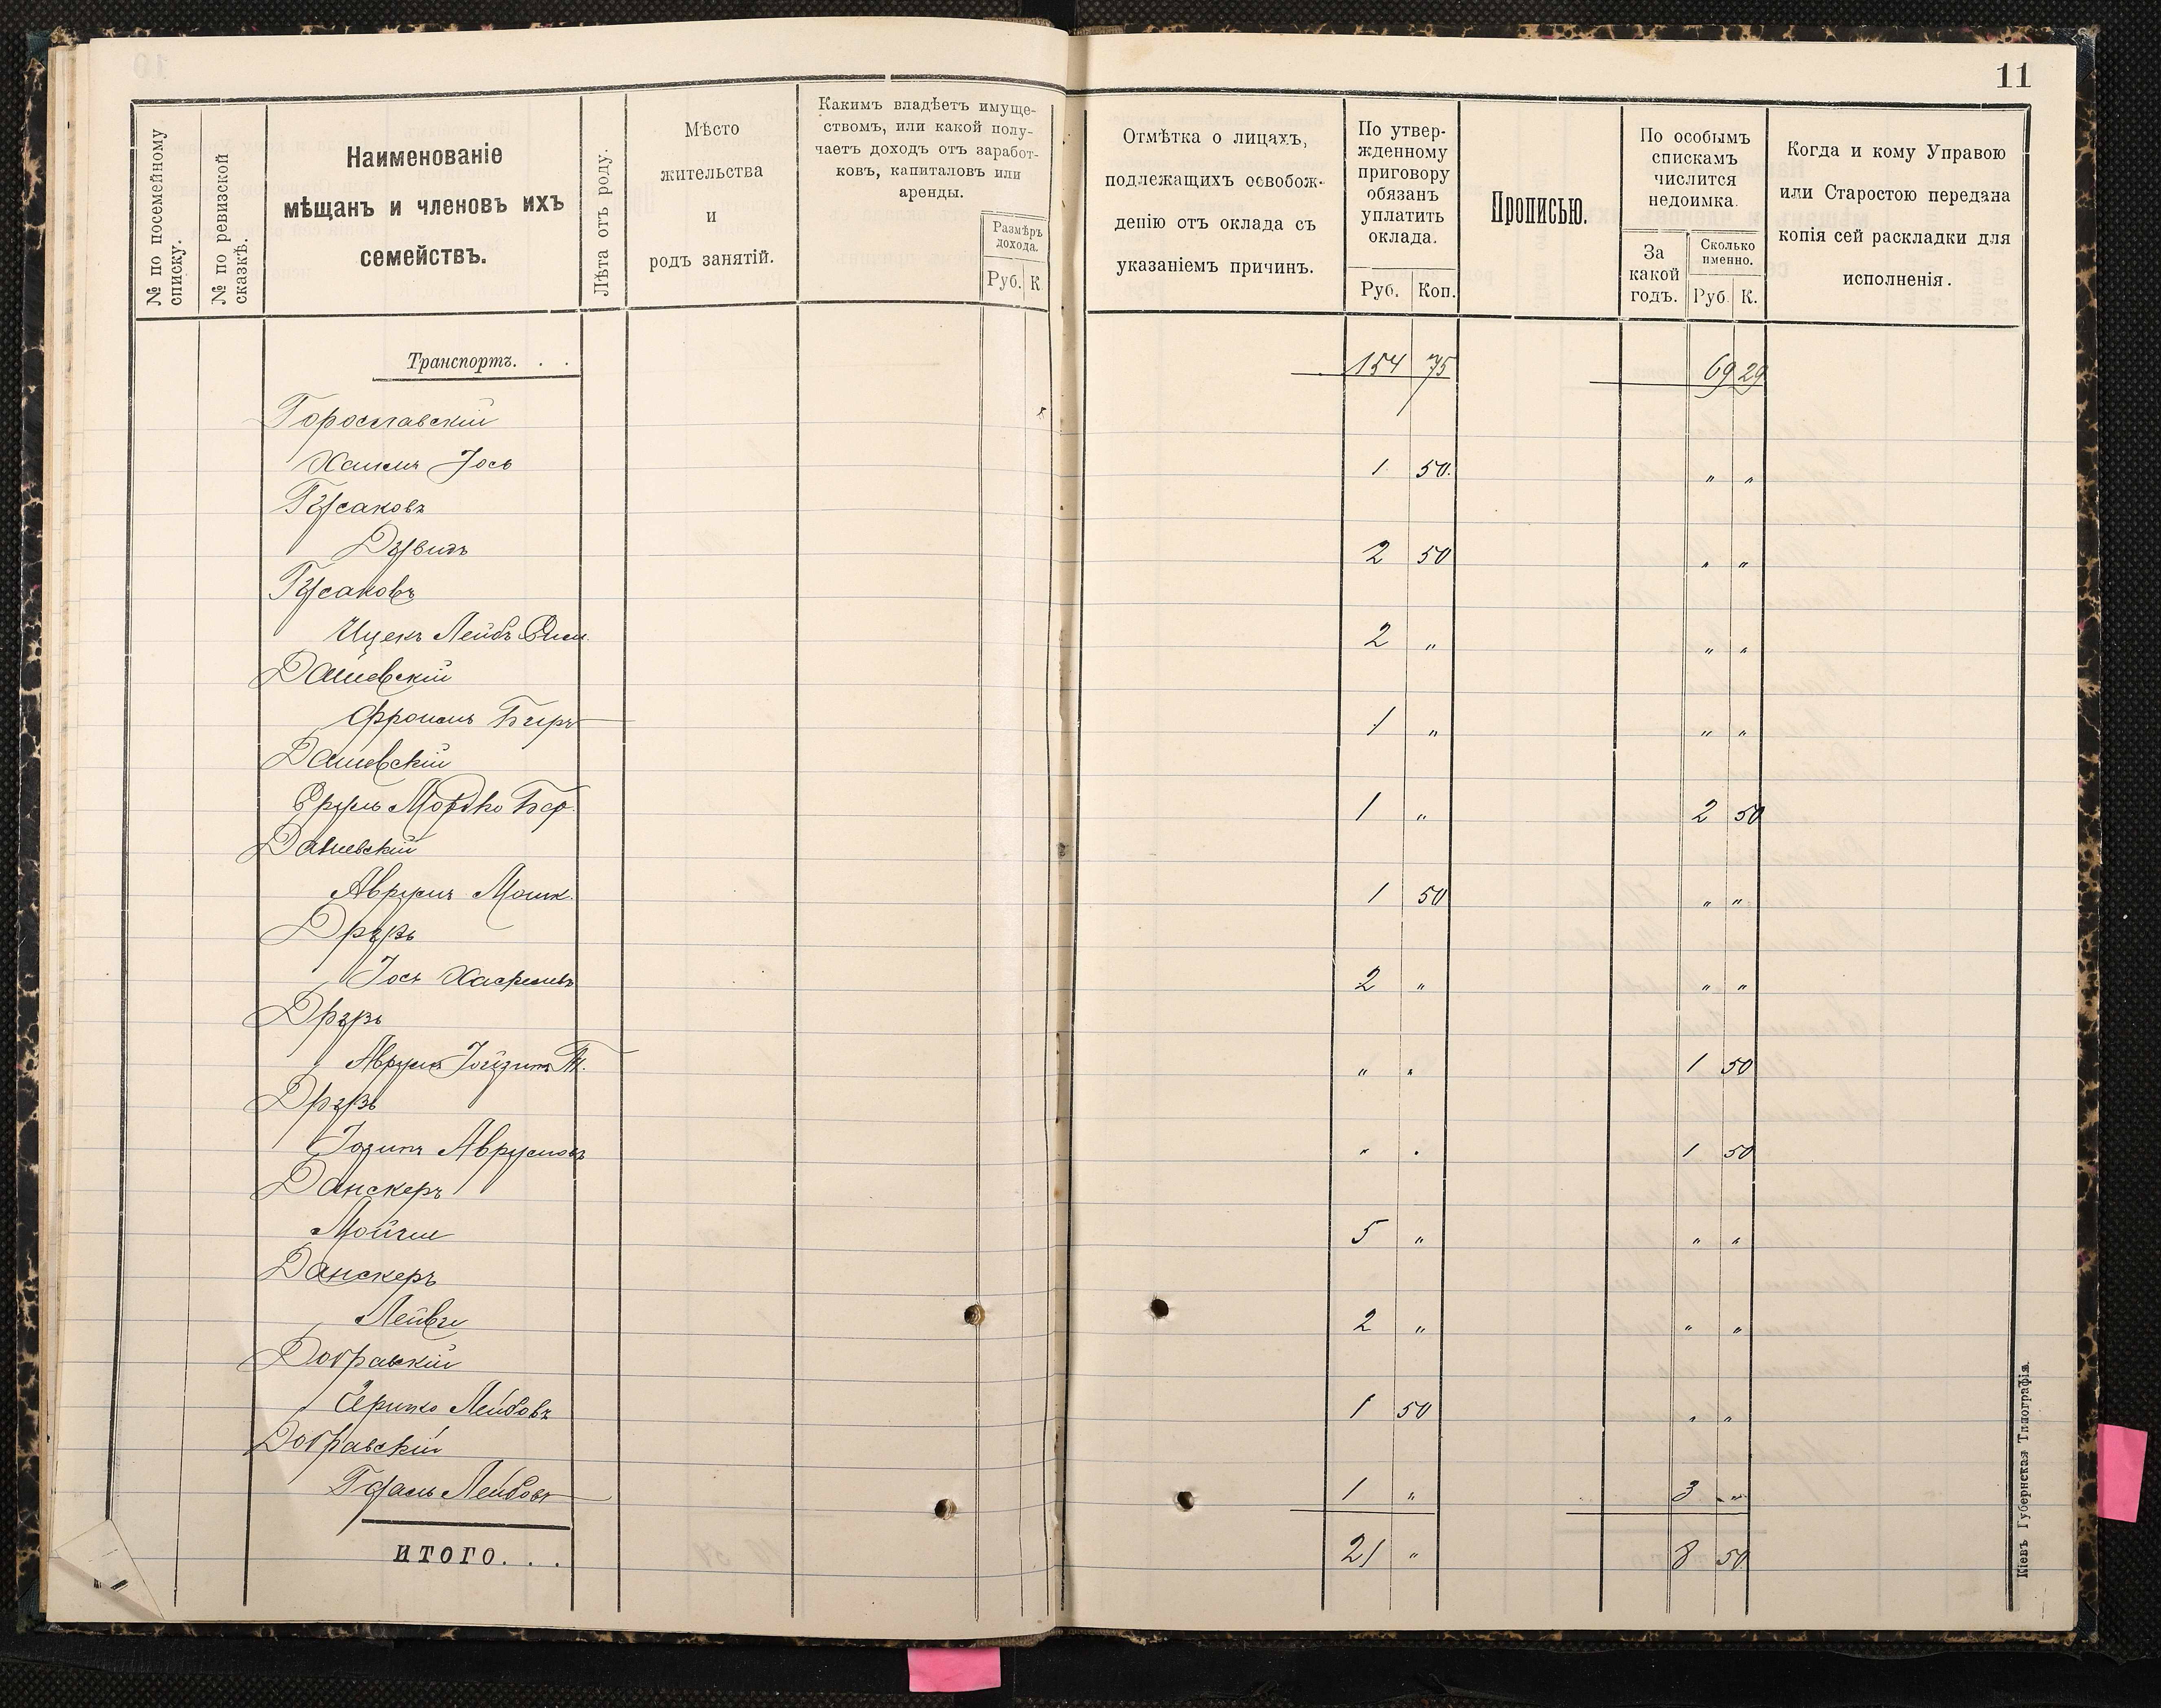 11
№ по посемейному списку.
№ по ревизской сказкѣ.
Наименованіе
мѣщанъ и членовъ ихъ
семействъ.
Лѣта отъ роду.
Мѣсто
жительства
и
родъ занятій.
Какимъ владѣетъ имуще-
ствомъ, или какой полу-
чаетъ доходъ отъ заработ-
ковъ, капиталовъ или
аренды.
Размѣръ
дохода.
Руб. К.
Отмѣтка о лицахъ,
подлежащихъ освобож-
денію отъ оклада съ
указаніемъ причинъ.
По утвер-
жденному
приговору
обязанъ
уплатить
оклада.
Руб. Коп.
Прописью.
По особымъ
спискамъ
числится
недоимка.
За
какой
годъ.
Сколько
именно.
Руб. К.
Когда и кому Управою
или Старостою передана
копія сей раскладки для
исполненія.
Транспортъ. . . 154 75 69 29
Горославскій
Хаимъ Іось 1 50. " "
Гусаковъ
Дувидъ 2 50 " "
Гусаковъ
Ицекъ Лейбъ 2 " " "
Дашевскій
Фроимъ Беръ 1 " " "
Дашевскій
Срулъ Мордко Бер. 1 " 2 50
Дашевскій
Аврумъ Мошк. 1 50 " "
Друзь
Іось 2 " " "
Друзь
Аврумъ " " 1 50
Друзь
Аврумовъ " " 1 50
Данскеръ
Мойше 5 " " "
Данскеръ
Лейбе 2 " " "
Добравскій
Лейбовъ 1 50 " "
Добравскій
Лейбовъ 1 " 3 "
ИТОГО. . . 21 " 8 50
Кіевъ Губернская Типографія.